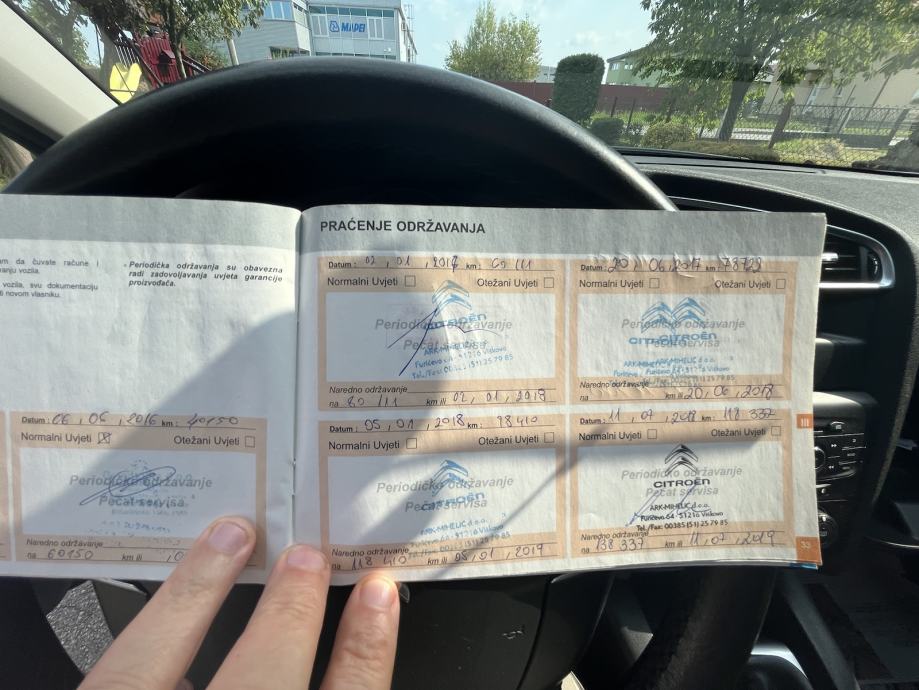 MAPEI
am da čuvate račune i
anju vozila.
vozila, svu dokumentaciju
i novom vlasniku.
- Periodička održavanja su obavezna
radi zadovoljavanja uvjeta garancije
proizvođača.
Datum : 06 , 06 , 2016 km : 40150
Normalni Uvjeti Otežani Uvjeti
Periodičko održavanje
Pečat servisa
Naredno održavanje
na 60150 km ili
PRAĆENJE ODRŽAVANJA
Datum : 02 , 01 , 2017 km : 60 111
Normalni Uvjeti Otežani Uvjeti
CITROËN
Periodičko održavanje
Pečat servisa
ARK-MIHELIĆ d.o.o.
Furićevo 64 - 51216 Viškovo
Tel./Fax: 00385 (51) 25 79 85
Naredno održavanje
na 80 111 km ili 02 , 01 , 2018
Datum : 20 , 06 , 2017 km : 78729
Normalni Uvjeti Otežani Uvjeti
Periodičko održavanje
CITROËN
Pečat servisa
ARK-MIHELIĆ d.o.o.
Naredno održavanje
na km ili 20, 06 , 2018
Datum : 05 , 01 , 2018 km : 98410
Normalni Uvjeti Otežani Uvjeti
Periodičko održavanje
CITROËN
Pečat servisa
ARK-MIHELIĆ d.o.o.
Naredno održavanje
na 118 410 km ili 05 , 01 , 2019
Datum : 11 , 07 , 2018 km : 118 337
Normalni Uvjeti Otežani Uvjeti
Periodičko održavanje
CITROËN
Pečat servisa
ARK-MIHELIĆ d.o.o.
Furićevo 64 - 51216 Viškovo
Tel./ Fax: 00385 (51) 25 79 85
Naredno održavanje
na 138 337 km ili 11 , 07 , 2019
III
33